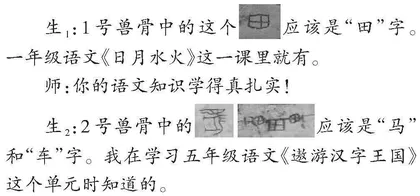 生1:1号兽骨中的这个 应该是“田”字。
一年级语文《日月水火》这一课里就有。
师:你的语文知识学得真扎实!
生2:2号兽骨中的 应该是“马”
和“车”字。我在学习五年级语文《遨游汉字王国》
这个单元时知道的。